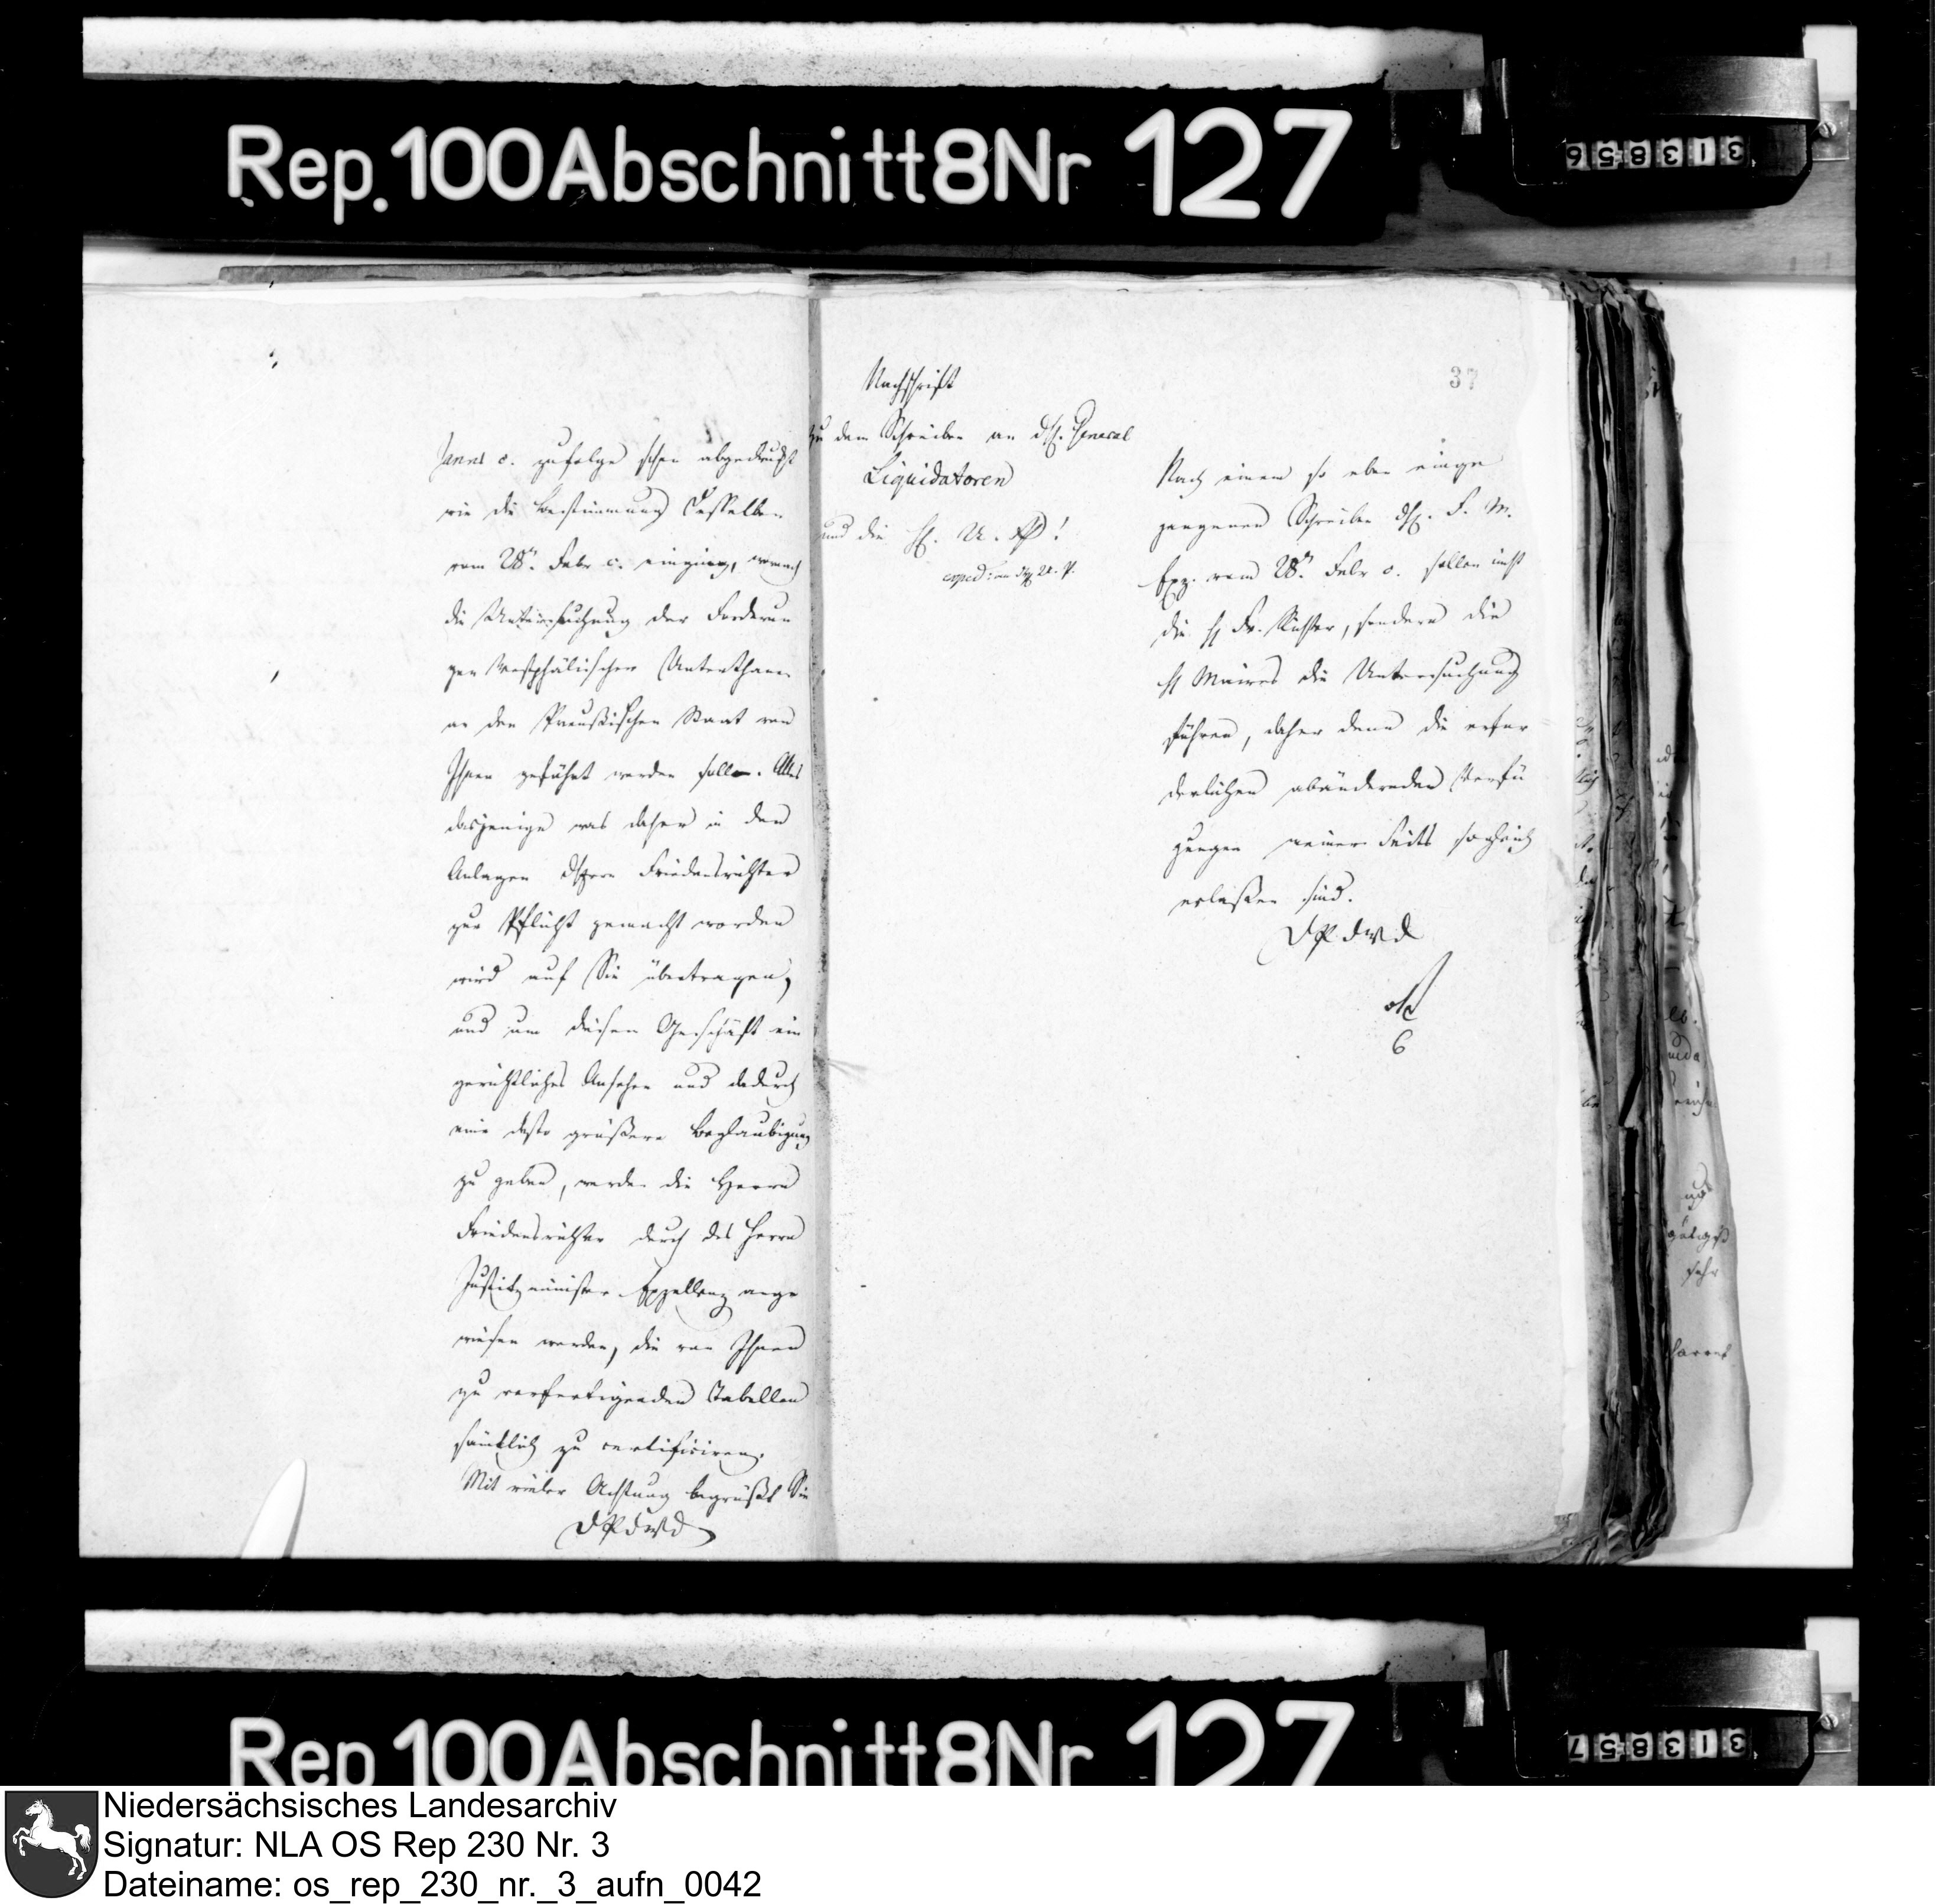 Rep. 100 Abschnitt 8 Nr 127
313856
Janns c. zufolge schon abgedruckt
wie die Bestimmung desselben
vom 28n. Febr c. einging, wonach
die Untersuchung der Forderun
gen Westphälischer Unterthanen
an den Preußischen Staat von
Ihnen geführt werden sollen. Alles
dasjenige was daher in den
Anlagen dHerrn Friedensrichter
zur Pflicht gemacht worden
wird auf Sie übertragen,
und um diesem Geschäft ein
gerichtliches Ansehen und dadurch
eine desto größere Beglaubigung
zu geben, werden die Herrn
Friedensrichter durch des Herrn
Justizminister Exzellenz ange
wiesen werden, die von Ihnen
zu verfertigenden Tabellen
sämtlich zu certifiziren.
Mit vieler Achtung begrüßt Sie
DPdWD
37
Nachschrift
zu dem Schreiben an dH. General
Liquidatoren
und die H. U. P!
exped: an dH U. P.
Nach einem so eben einge
gangenen Schreiben dH. F. M.
Exz. vom 28n. Febr c. sollen nicht
die H Fr. Richter, sondern die
H Maires die Untersuchung
führen, daher denn die erfor
derlichen abändernden Verfü
gungen meiner Seits sogleich
erlaßen sind.
DPdWD
6
Rep 100 Abschnitt 8 Nr 127
313857
Niedersächsisches Landesarchiv
Signatur: NLA OS Rep 230 Nr. 3
Dateiname: os_rep_230_nr._3_aufn_0042